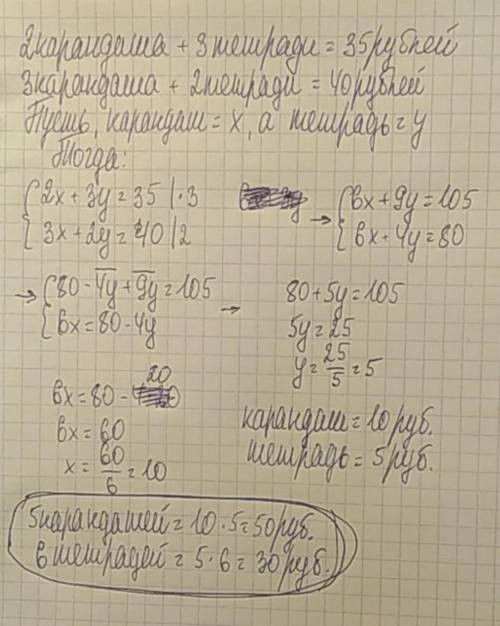 2 карандаша + 3 тетради = 35 рублей
3 карандаша + 2 тетради = 40 рублей
Пусть, карандаш = x, а тетрадь = y
Тогда:
{ 2x + 3y = 35 | · 3
{ 3x + 2y = 40 | 2
→ { 6x + 9y = 105
{ 6x + 4y = 80
→ { 80 - 4y + 9y = 105
{ 6x = 80 - 4y
→ 80 + 5y = 105
5y = 25
y = 25/5 = 5
6x = 80 - 20
6x = 60
x = 60/6 = 10
карандаш = 10 руб.
тетрадь = 5 руб.
5 карандашей = 10 · 5 = 50 руб.
6 тетрадей = 5 · 6 = 30 руб.